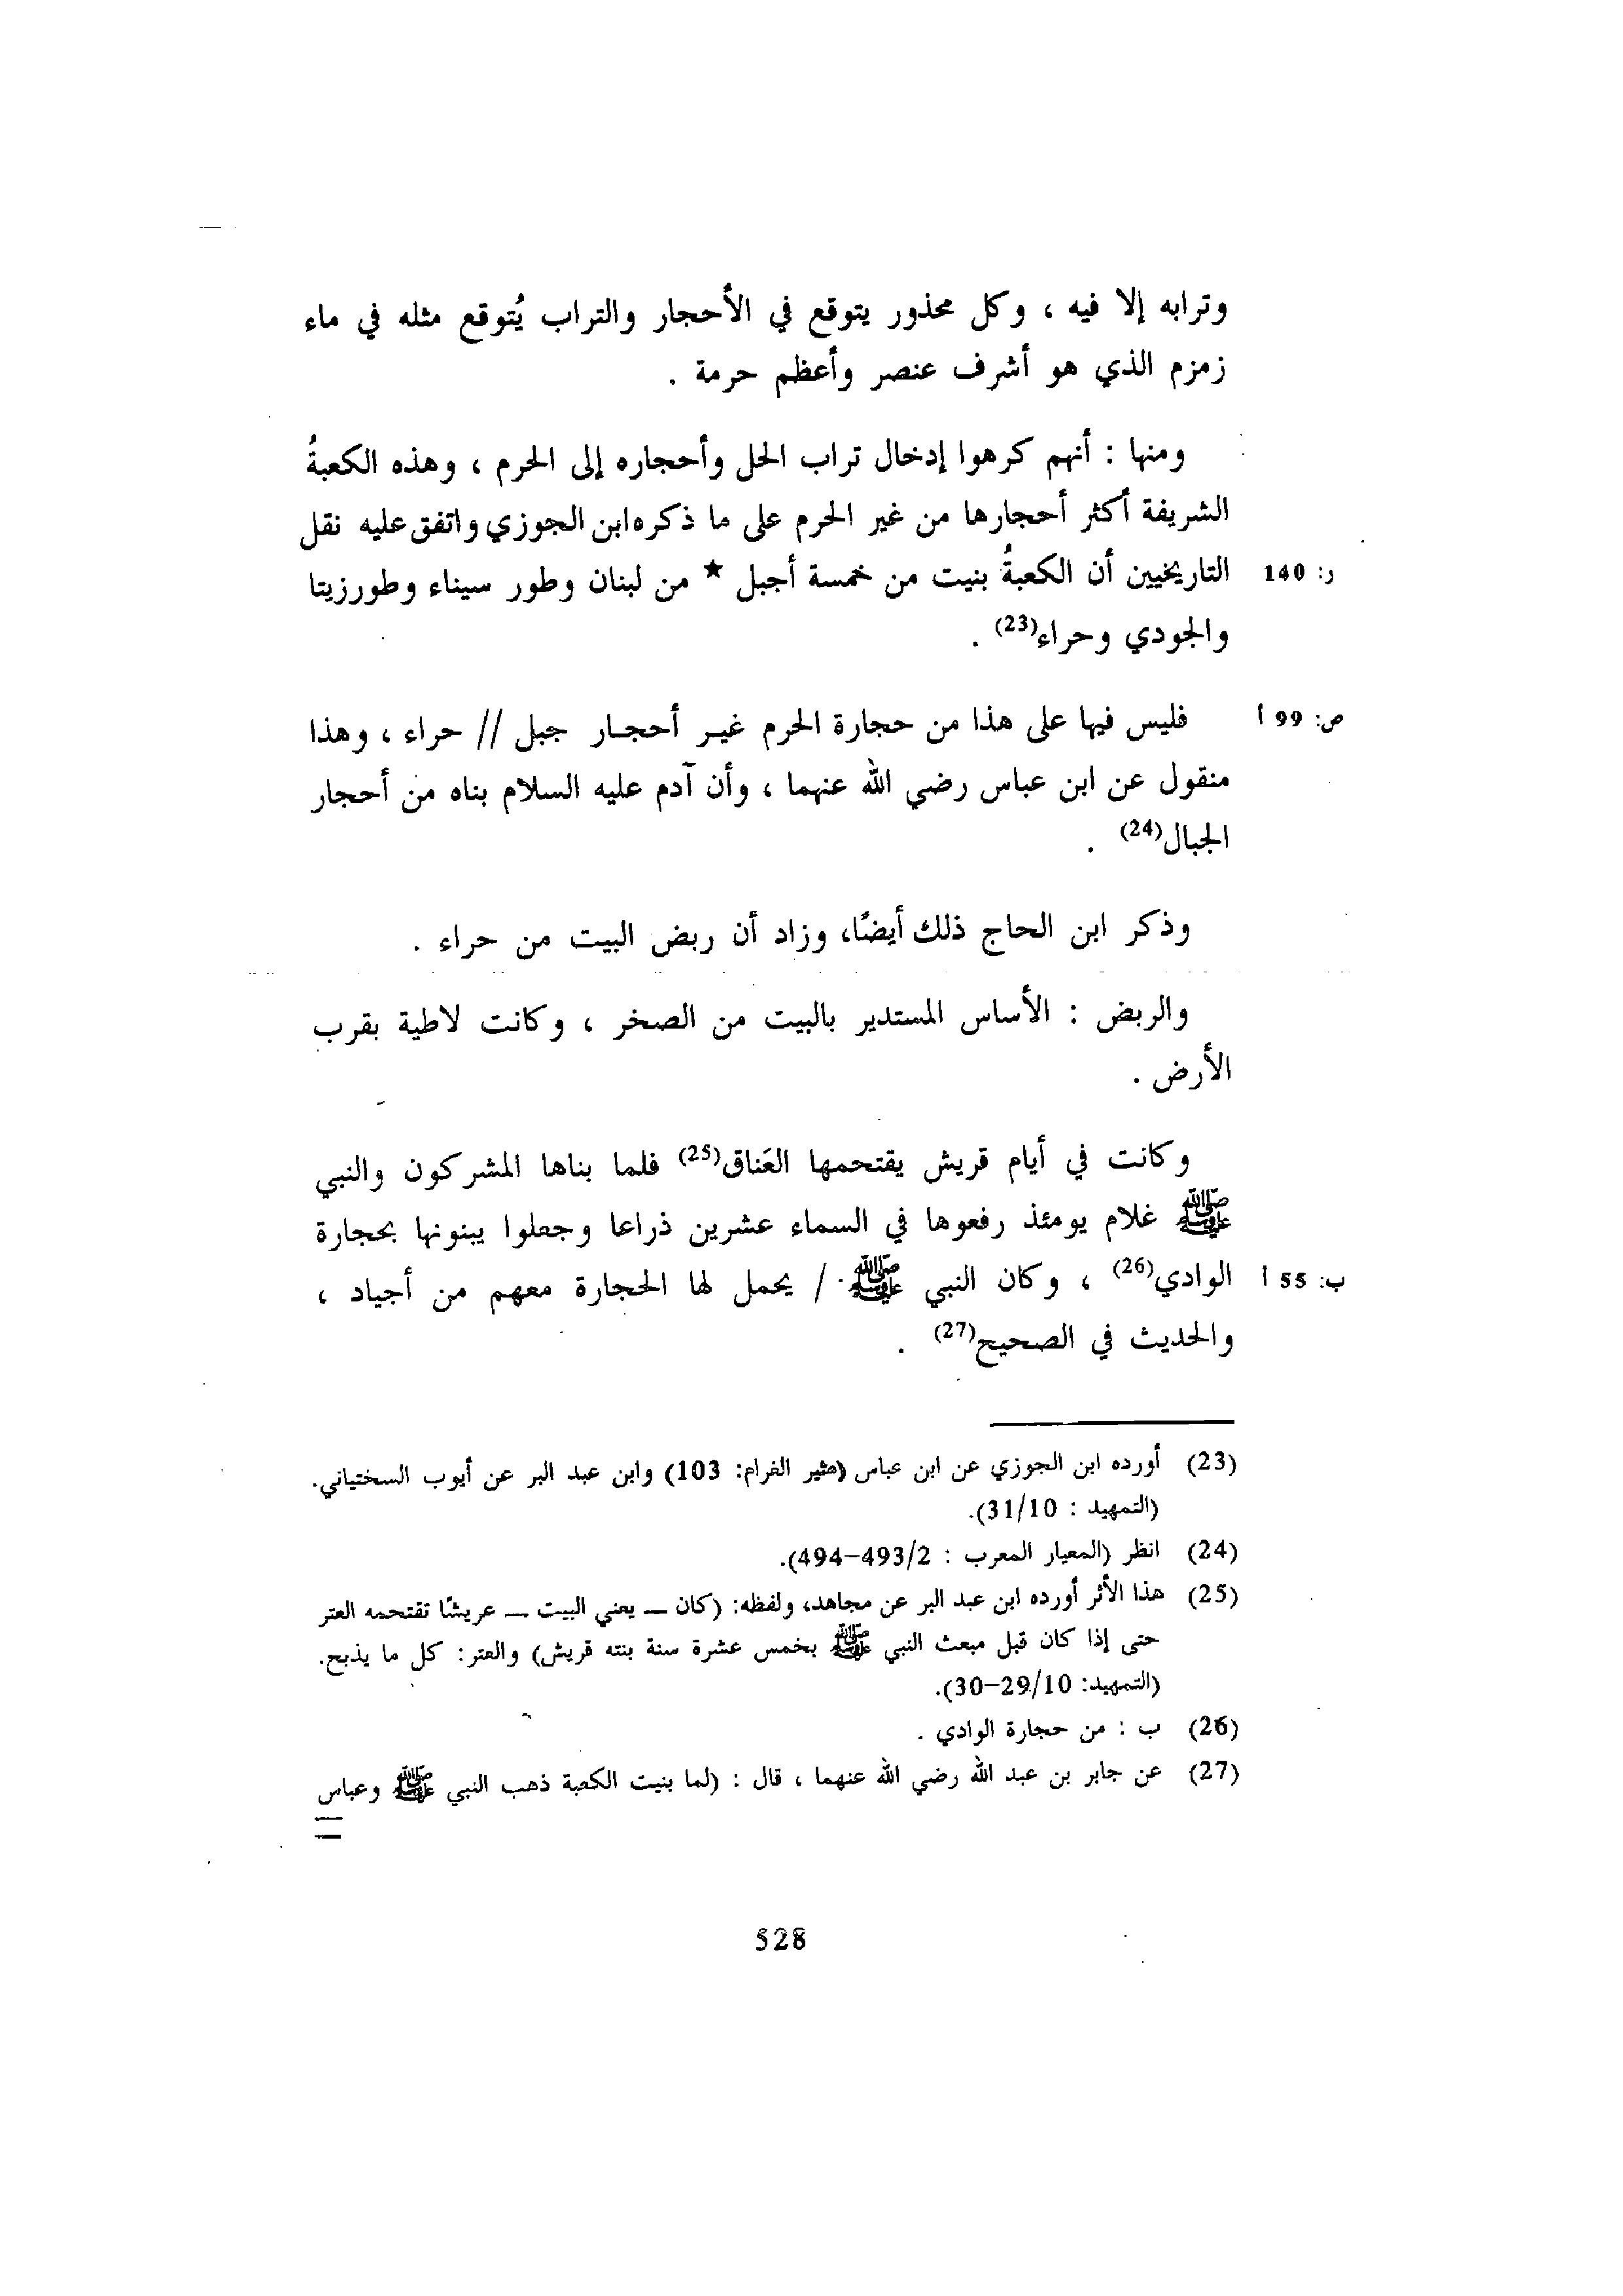 وترابه إلا فيه ، وكل محذور يتوقع في الأحجار والتراب يُتوقع مثله في ماء
زمزم الذي هو أشرف عنصر وأعظم حرمة .
ومنها : أنهم كرهوا إدخال تراب الحل وأحجاره إلى الحرم ، وهذه الكعبةُ
الشريفة أكثر أحجارها من غير الحرم على ما ذكره ابن الجوزي واتفق عليه نقل
ر: 140 التاريخيين أن الكعبةُ بنيت من خمسة أجبل ★ من لبنان وطور سيناء وطورزيتا
والجودي وحراء(23) .
ص: 99 أ فليس فيها على هذا من حجارة الحرم غير أحجار جبل // حراء ، وهذا
منقول عن ابن عباس رضي الله عنهما ، وأن آدم عليه السلام بناه من أحجار
الجبال(24) .
وذكر ابن الحاج ذلك أيضًا، وزاد أن ربض البيت من حراء .
والربض : الأساس المستدير بالبيت من الصخر ، وكانت لاطية بقرب
الأرض .
وكانت في أيام قريش يقتحمها العَناق(25) فلما بناها المشركون والنبي
ﷺ غلام يومئذ رفعوها في السماء عشرين ذراعا وجعلوا يبنونها بحجارة
ب: 55 أ الوادي(26) ، وكان النبي ﷺ / يحمل لها الحجارة معهم من أجياد ،
والحديث في الصحيح(27) .
(23) أورده ابن الجوزي عن ابن عباس (مثير الغرام: 103) وابن عبد البر عن أيوب السختياني.
(التمهيد : 31/10).
(24) انظر (المعيار المعرب : 493/2–494).
(25) هذا الأثر أورده ابن عبد البر عن مجاهد، ولفظه: (كان ــ يعني البيت ــ عريشًا تقتحمه العتر
حتى إذا كان قبل مبعث النبي ﷺ بخمس عشرة سنة بنته قريش) والعتر: كل ما يذبح.
(التمهيد: 29/10–30).
(26) ب : من حجارة الوادي .
(27) عن جابر بن عبد الله رضي الله عنهما ، قال : (لما بنيت الكعبة ذهب النبي ﷺ وعباس
=
528